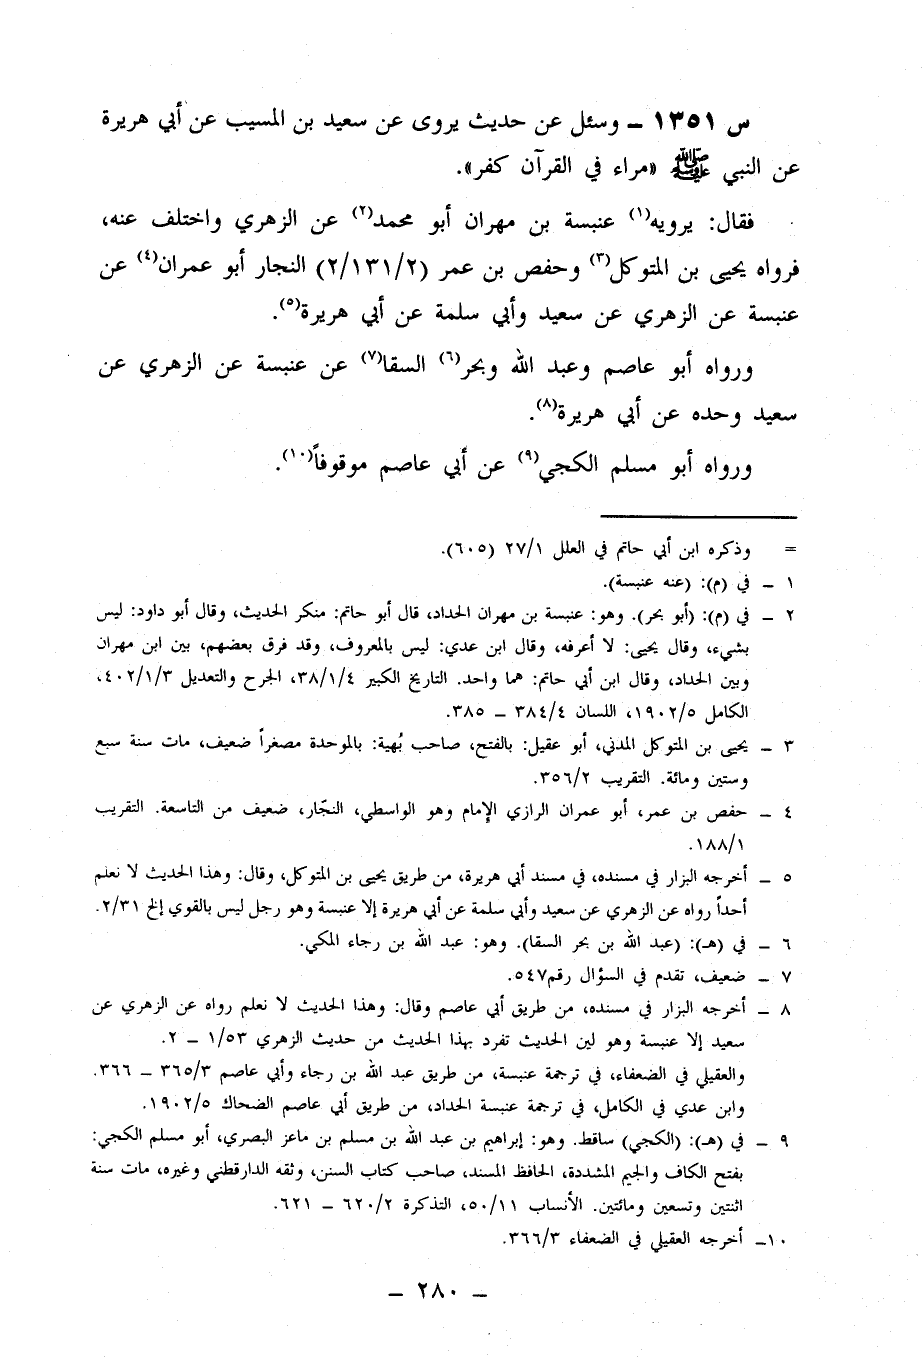 س ١٣٥١ ـ وسئل عن حديث يروى عن سعيد بن المسيب عن أبي هريرة
عن النبي ﷺ «مراء في القرآن كفر».
فقال: يرويه(١) عنبسة بن مهران أبو محمد(٢) عن الزهري واختلف عنه،
فرواه يحيى بن المتوكل(٣) وحفص بن عمر (٢/١٣١/٢) النجار أبو عمران(٤) عن
عنبسة عن الزهري عن سعيد وأبي سلمة عن أبي هريرة(٥).
ورواه أبو عاصم وعبد الله وبحر(٦) السقا(٧) عن عنبسة عن الزهري عن
سعيد وحده عن أبي هريرة(٨).
ورواه أبو مسلم الكجي(٩) عن أبي عاصم موقوفاً(١٠).
= وذكره ابن أبي حاتم في العلل ٢٧/١ (٦٠٥).
١ ـ في (م): (عنه عنبسة).
٢ ـ في (م): (أبو بحر). وهو: عنبسة بن مهران الحداد، قال أبو حاتم: منكر الحديث، وقال أبو داود: ليس
بشيء، وقال يحيى: لا أعرفه، وقال ابن عدي: ليس بالمعروف، وقد فرق بعضهم، بين ابن مهران
وبين الحداد، وقال ابن أبي حاتم: هما واحد. التاريخ الكبير ٣٨/١/٤، الجرح والتعديل ٤٠٢/١/٣،
الكامل ١٩٠٢/٥، اللسان ٣٨٤/٤ ـ ٣٨٥.
٣ ـ يحيى بن المتوكل المدني، أبو عقيل: بالفتح، صاحب بُهية: بالموحدة مصغراً ضعيف، مات سنة سبع
وستين ومائة. التقريب ٣٥٦/٢.
٤ ـ حفص بن عمر، أبو عمران الرازي الإمام وهو الواسطي، النجّار، ضعيف من التاسعة. التقريب
١٨٨/١.
٥ ـ أخرجه البزار في مسنده، في مسند أبي هريرة، من طريق يحيى بن المتوكل، وقال: وهذا الحديث لا نعلم
أحداً رواه عن الزهري عن سعيد وأبي سلمة عن أبي هريرة إلا عنبسة وهو رجل ليس بالقوي إلخ ٢/٣١.
٦ ـ في (هـ): (عبد الله بن بحر السقا). وهو: عبد الله بن رجاء المكي.
٧ ـ ضعيف، تقدم في السؤال رقم٥٤٧.
٨ ـ أخرجه البزار في مسنده، من طريق أبي عاصم وقال: وهذا الحديث لا نعلم رواه عن الزهري عن
سعيد إلا عنبسة وهو لين الحديث تفرد بهذا الحديث من حديث الزهري ١/٥٣ ـ ٢.
والعقيلي في الضعفاء، في ترجمة عنبسة، من طريق عبد الله بن رجاء وأبي عاصم ٣٦٥/٣ ـ ٣٦٦.
وابن عدي في الكامل، في ترجمة عنبسة الحداد، من طريق أبي عاصم الضحاك ١٩٠٢/٥.
٩ ـ في (هـ): (الكجي) ساقط. وهو: إبراهيم بن عبد الله بن مسلم بن ماعز البصري، أبو مسلم الكجي:
بفتح الكاف والجيم المشددة، الحافظ المسند، صاحب كتاب السنن، وثقه الدارقطني وغيره، مات سنة
اثنتين وتسعين ومائتين. الأنساب ٥٠/١١، التذكرة ٦٢٠/٢ ـ ٦٢١.
١٠ـ أخرجه العقيلي في الضعفاء ٣٦٦/٣.
ـ ٢٨٠ ـ